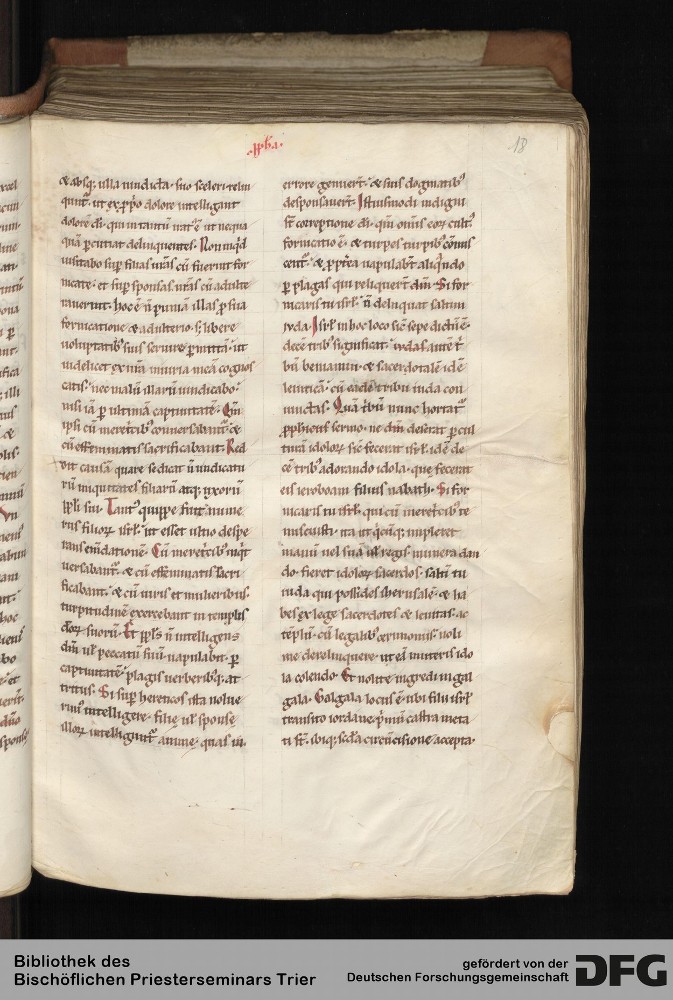 .pph̄a.
18
& absq; ulla uindicta. suo sceleri relin
quit. ut ex pprio dolore intelligant
dolorē dī. qui in tantū nat' ē ut nequa
quā pcutiat delinquentes. Non inqͥd
uisitabo sup filias ur̄as cū fuerint for
nicate. et sup sponsas ur̄as cū adulte
rauerint. hoc ē n̄ puniā illas p sua
fornicatione & adulterio. s; libere
uoluptatib' suis seruire pmittā. ut
uidelicet ex iniuria meā cognos
catis. nec malū illarū uindicabo.
nisi iā p ultimā captiuitatē. Qm̄
ipsi cū meretcib' conuersabant̄. &
cū effeminatis sacrificabant. Red
dit causā quare se dicat n̄ uindicatu
rū iniquitates filiarū atq; uxorū
ppli sui. Tant' quippe fuit nume
rus filioꝝ isrl̄. ut esset ultio despe
rans em̄dationē. Cū meretcib' inqͥt
uersabant̄. & cū effeminatis sacri
ficabant. & cū uiris et mulierib'
turpitudinē exercebant in templis
deoꝝ suorū. Et ppl's n̄ intelligens
dm̄ ul' peccatū suū uapulabit. p
captiuitatē. plagis uerberibq. at
tritus. Si sup hereticos ista uolue
rim' intelligere. filie ul' sponse
illoꝝ intelligunt̄ anime. quas in
errore genuert̄. & suis dogmatib'
desponsauert̄. Istiusmodi indigni
st̄ correptione dī. qm̄ om̄is eoꝝ cult'
fornicatio ē. & turpes turpib' com̄is
cent̄. & pptea uapulabt̄ aliqn̄do
p plagas qui reliquert̄ dm̄. Si for
nicaris tu isrl̄. n̄ delinquat saltim
iuda. Isrl̄ in hoc loco sic̄ sepe dictū ē.
decē trib' significat. iudas autē t
bū beniamin. & sacerdotale idē
leuiticā. cū eadē tribu iuda con
iunctas. Quā t bū nunc hortat̄
ppheticus sermo. ne dm̄ deserat p cul
turā idoloꝝ sic̄ fecerat isrl̄ idē de
cē trib' adorando idola. que fecerat
eis ieroboam filius nabath. Si for
nicaris tu isrl̄. qui cū meretcib' te
miscuisti. ita ut qͥcūq; impleret
manū uel sua ul' regis munera dan
do. fieret idoloꝝ sacerdos. saltī tu
iuda qui possides iherusalē. & ha
bes ex lege sacerdotes & leuitas. ac
tēplū cū legalib' cerimoniis. noli
me derelinquere. ut eā imiteris ido
la colendo. Et nolite ingredi in gal
gala. Galgala locus ē. ubi filii isrl̄
transito iordane pmū castra meta
ti st̄. ibiq; scda circūcisione accepta.
Bibliothek des
Bischöflichen Priesterseminars Trier
gefördert von der
Deutschen Forschungsgemeinschaft
DFG